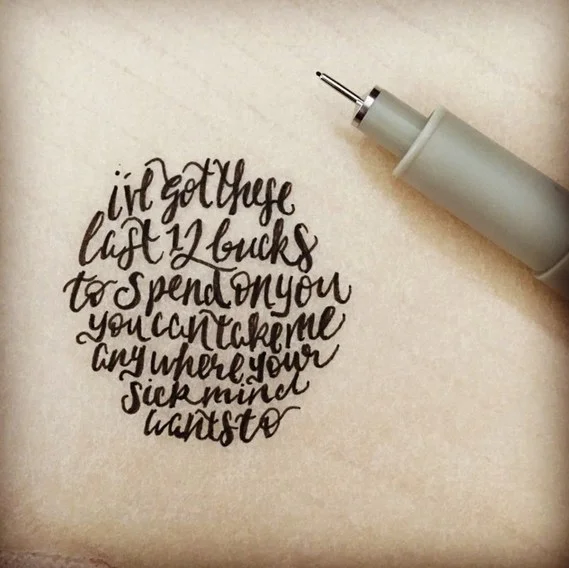 i've got these
last 12 bucks
to spend on you
you can take me
any where your
sick mind
wants to